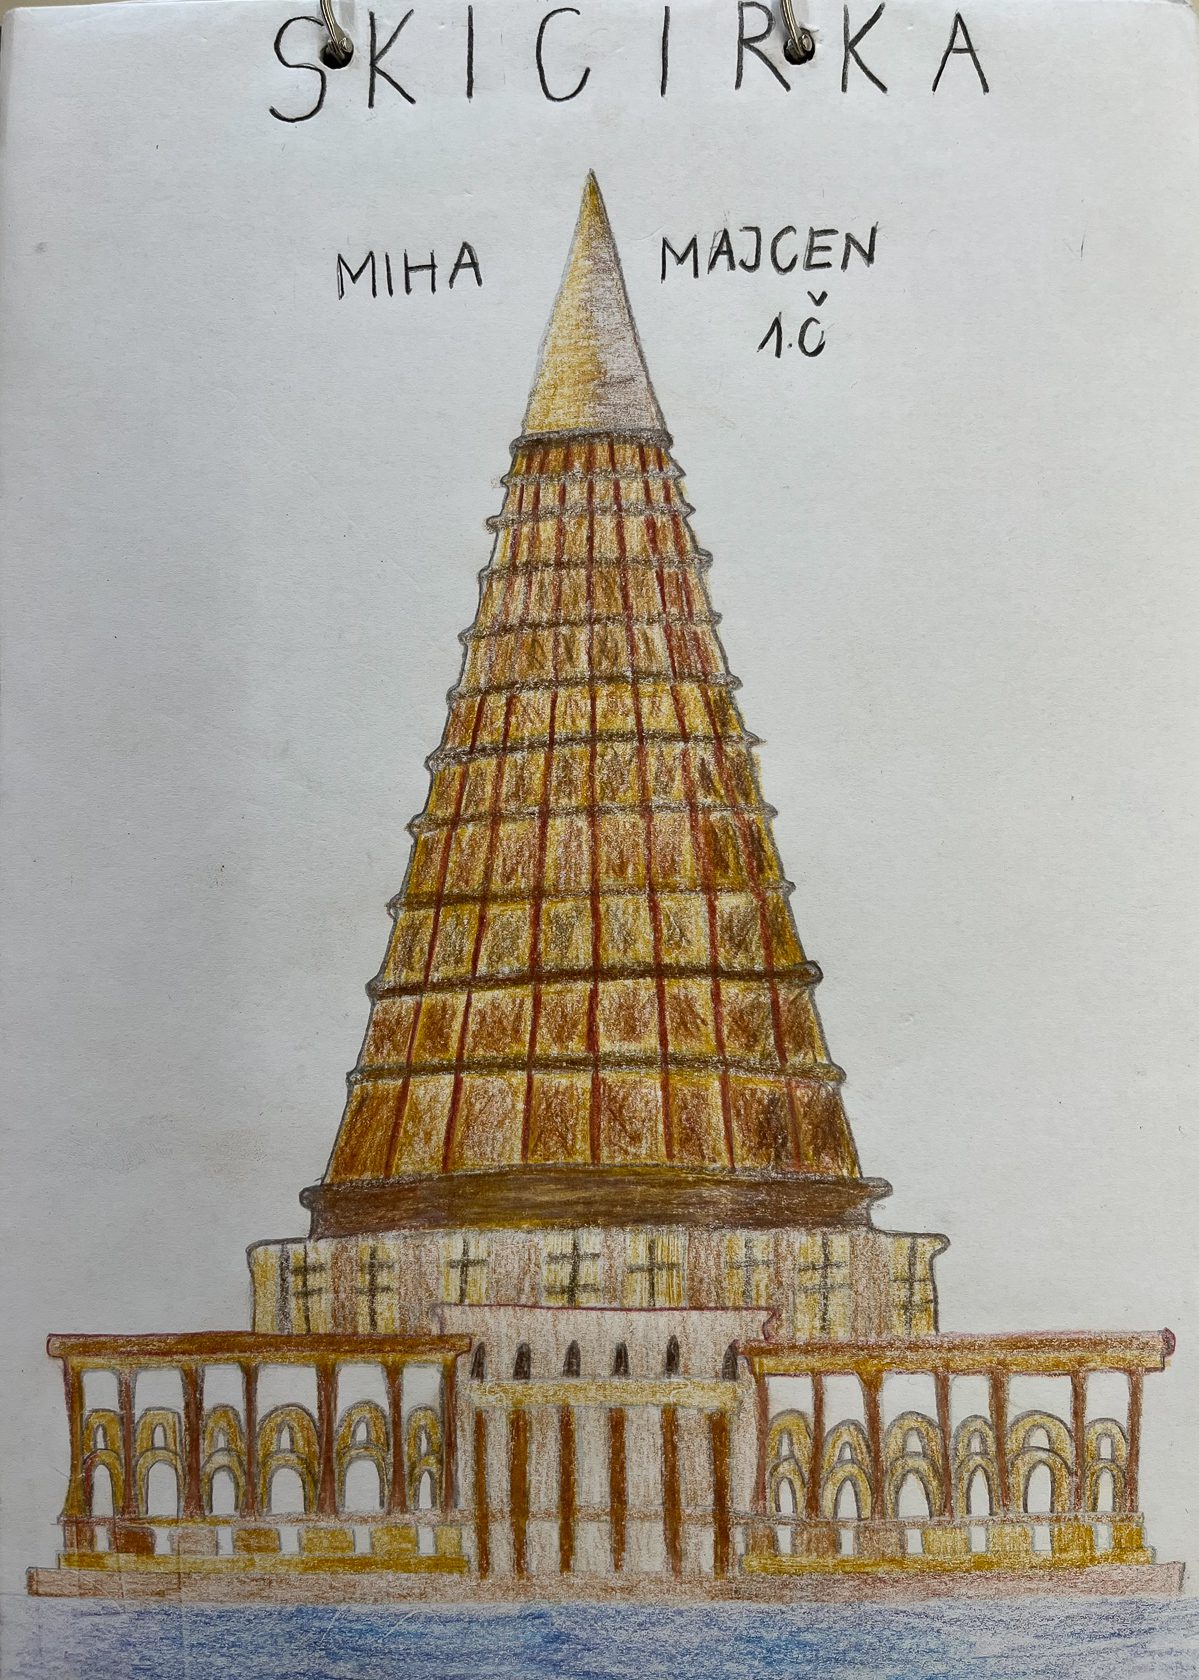 SKICIRKA
MIHA MAJCEN
1.Č